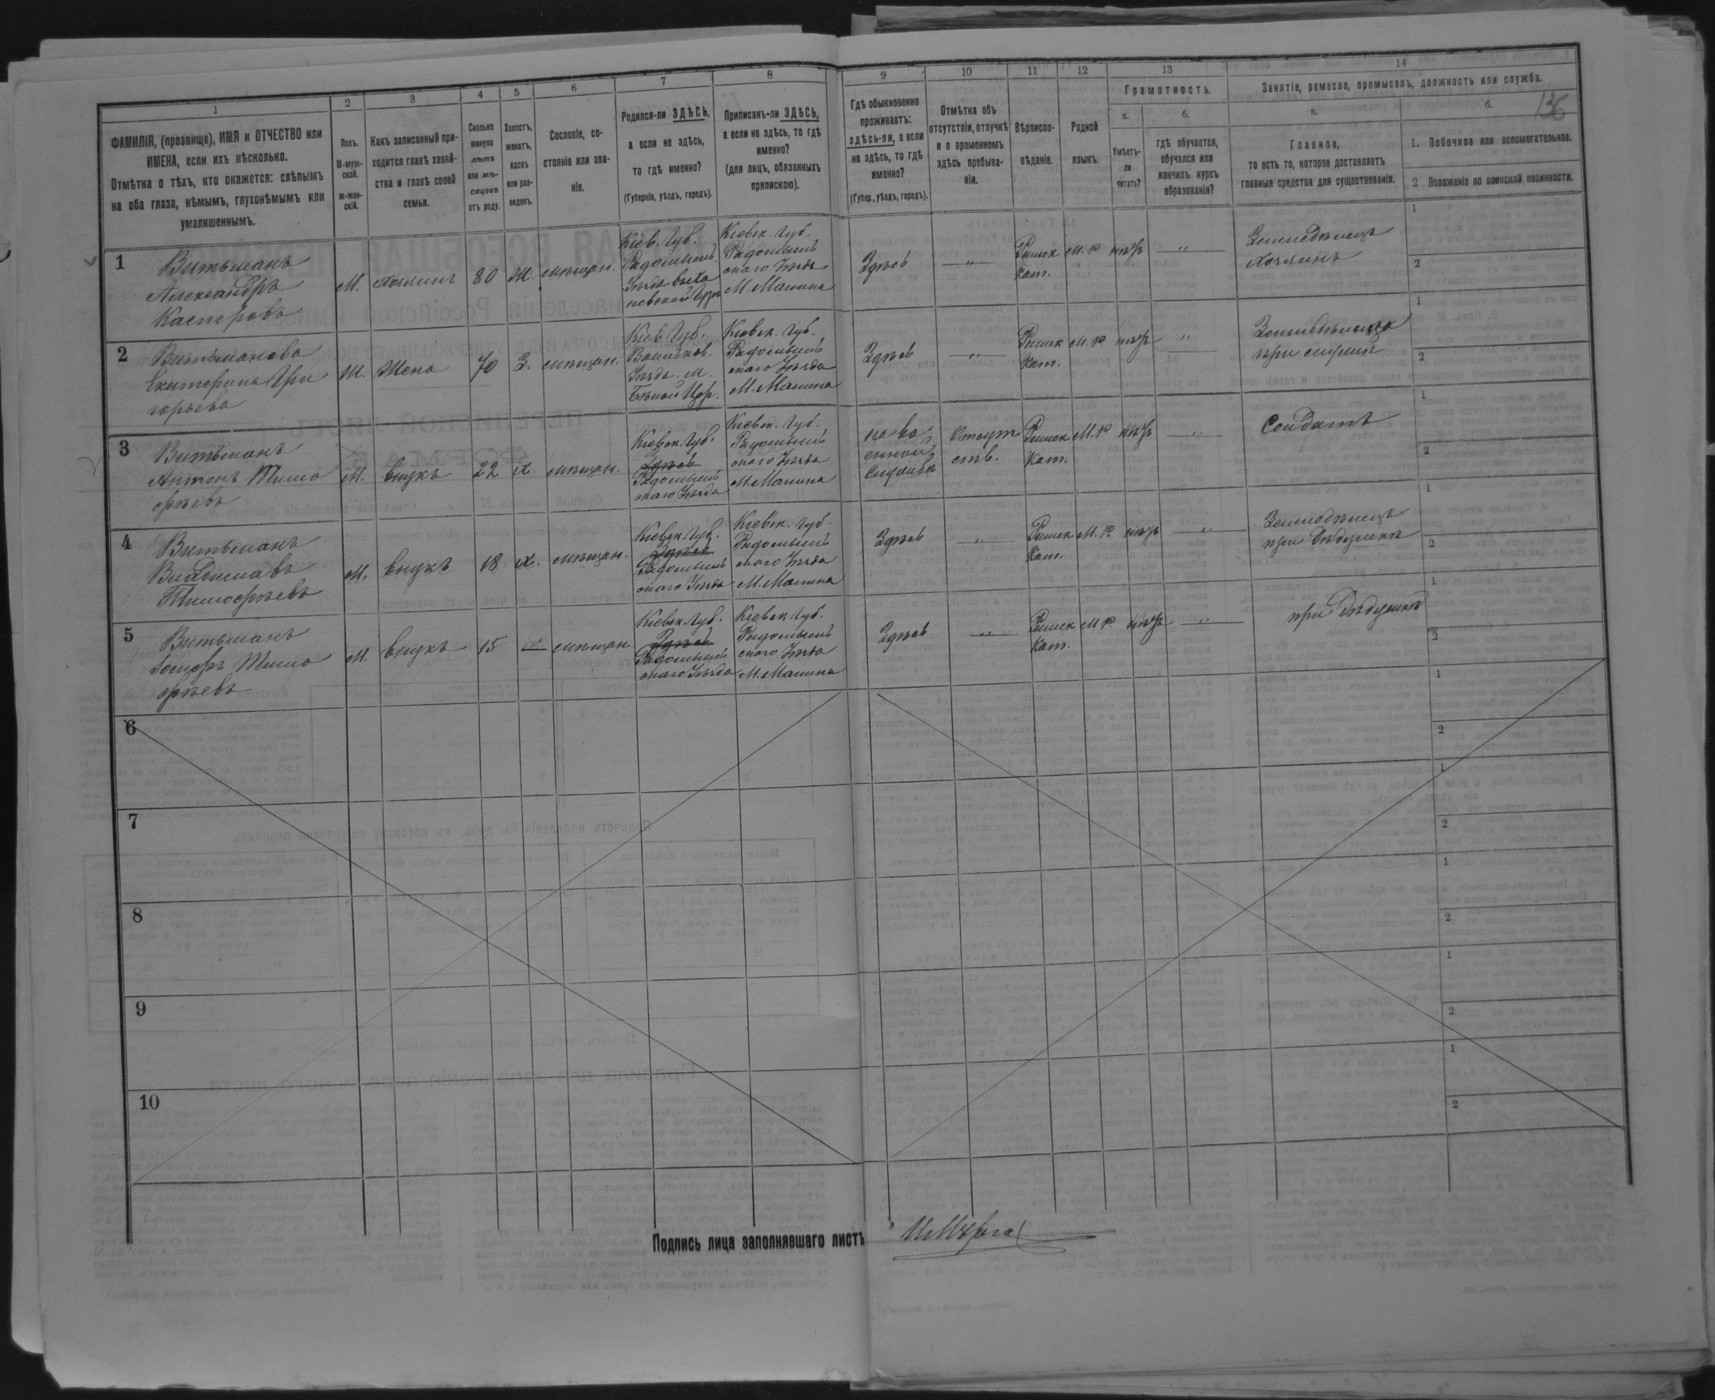 136
1
2
3
4
5
6
7
8
9
10
11
12
13
14
ФАМИЛІЯ, (прозвище), ИМЯ и ОТЧЕСТВО или
ИМЕНА, если ихъ нѣсколько.
Отмѣтка о тѣхъ, кто окажется: слѣпымъ
на оба глаза, нѣмымъ, глухонѣмымъ или
умалишеннымъ.
Полъ.
М-муж-
ской.
Ж-жен-
скій.
Какъ записанный при-
ходится главѣ хозяй-
ства и главѣ своей
семьи.
Сколько
минуло
лѣтъ
или мѣ-
сяцевъ
отъ роду.
Холостъ,
женатъ,
вдовъ
или раз-
веденъ.
Сословіе, со-
стояніе или зва-
ніе.
Родился-ли ЗДѢСЬ,
а если не здѣсь,
то гдѣ именно?
(Губернія, уѣздъ, городъ).
Приписанъ-ли ЗДѢСЬ,
а если не здѣсь, то гдѣ
именно?
(для лицъ, обязанныхъ
припискою).
Гдѣ обыкновенно
проживаетъ:
здѣсь-ли, а если
не здѣсь, то гдѣ
именно?
(Губер., уѣздъ, городъ).
Отмѣтка объ
отсутствіи, отлучкѣ
и о временномъ
здѣсь пребыва-
ніи.
Вѣроиспо-
вѣданіе.
Родной
языкъ.
Грамотность.
а.
Умѣетъ-
ли
читать?
б.
гдѣ обучается,
обучался или
кончилъ курсъ
образованія?
Занятіе, ремесло, промыселъ, должность или служба.
а.
Главное,
то есть то, которое доставляетъ
главныя средства для существованія.
б.
1. Побочное или вспомогательное.
2 Положеніе по воинской повинности.
1
Витьманъ
Александръ
Касперовъ
М.
хозяинъ
80
Ж
мѣщан.
Кіев. Губ.
Радомысл.
Уѣзда
Кіевск. Губ.
Радомысль
скаго Уѣзда
М. Малина
Здѣсь
"
Римск
Кат.
М. Р
"
Земледѣлецъ
хозяинъ
1
2
2
Витьманова
Екатерина Гри
горьева
Ж.
Жена
70
З.
мѣщан.
Кіев. Губ.
Васильков.
Уѣзда. М.
Бѣлой Цер.
Кіевск. Губ.
Радомысль
скаго Уѣзда
М. Малина
Здѣсь
"
Римск
Кат.
М. Р
"
при мужѣ
1
2
3
Витьманъ
Антонъ Тимо
фѣевъ
М.
внукъ
22
х.
мѣщан.
Кіевск. Губ.
Здѣсь
Радомысль
скаго Уѣзда
Кіевск. Губ.
Радомысль
скаго Уѣзда
М. Малина
на во
енной
службѣ
Отсут
ств.
Римск
Кат.
М. Р
"
Солдатъ
1
2
4
Витьманъ
Владиславъ
Тимофѣевъ
М.
внукъ
18
х.
мѣщан.
Кіевск. Губ.
Здѣсь
Радомысль
скаго Уѣзда
Кіевск. Губ.
Радомысль
скаго Уѣзда
М. Малина
Здѣсь
"
Римск
Кат.
М. Р
"
Земледѣлецъ
при Дѣдушкѣ
1
2
5
Витьманъ
Тимо
фѣевъ
М.
внукъ
15
мѣщан
Кіевск. Губ.
Здѣсь
Радомысль
скаго Уѣзда
Кіевск. Губ.
Радомысль
скаго Уѣзда
М. Малина
Здѣсь
"
Римск
Кат.
М Р
"
при Дѣдушкѣ
1
2
6
1
2
7
1
2
8
1
2
9
1
2
10
1
2
Подпись лица заполнявшаго листъ